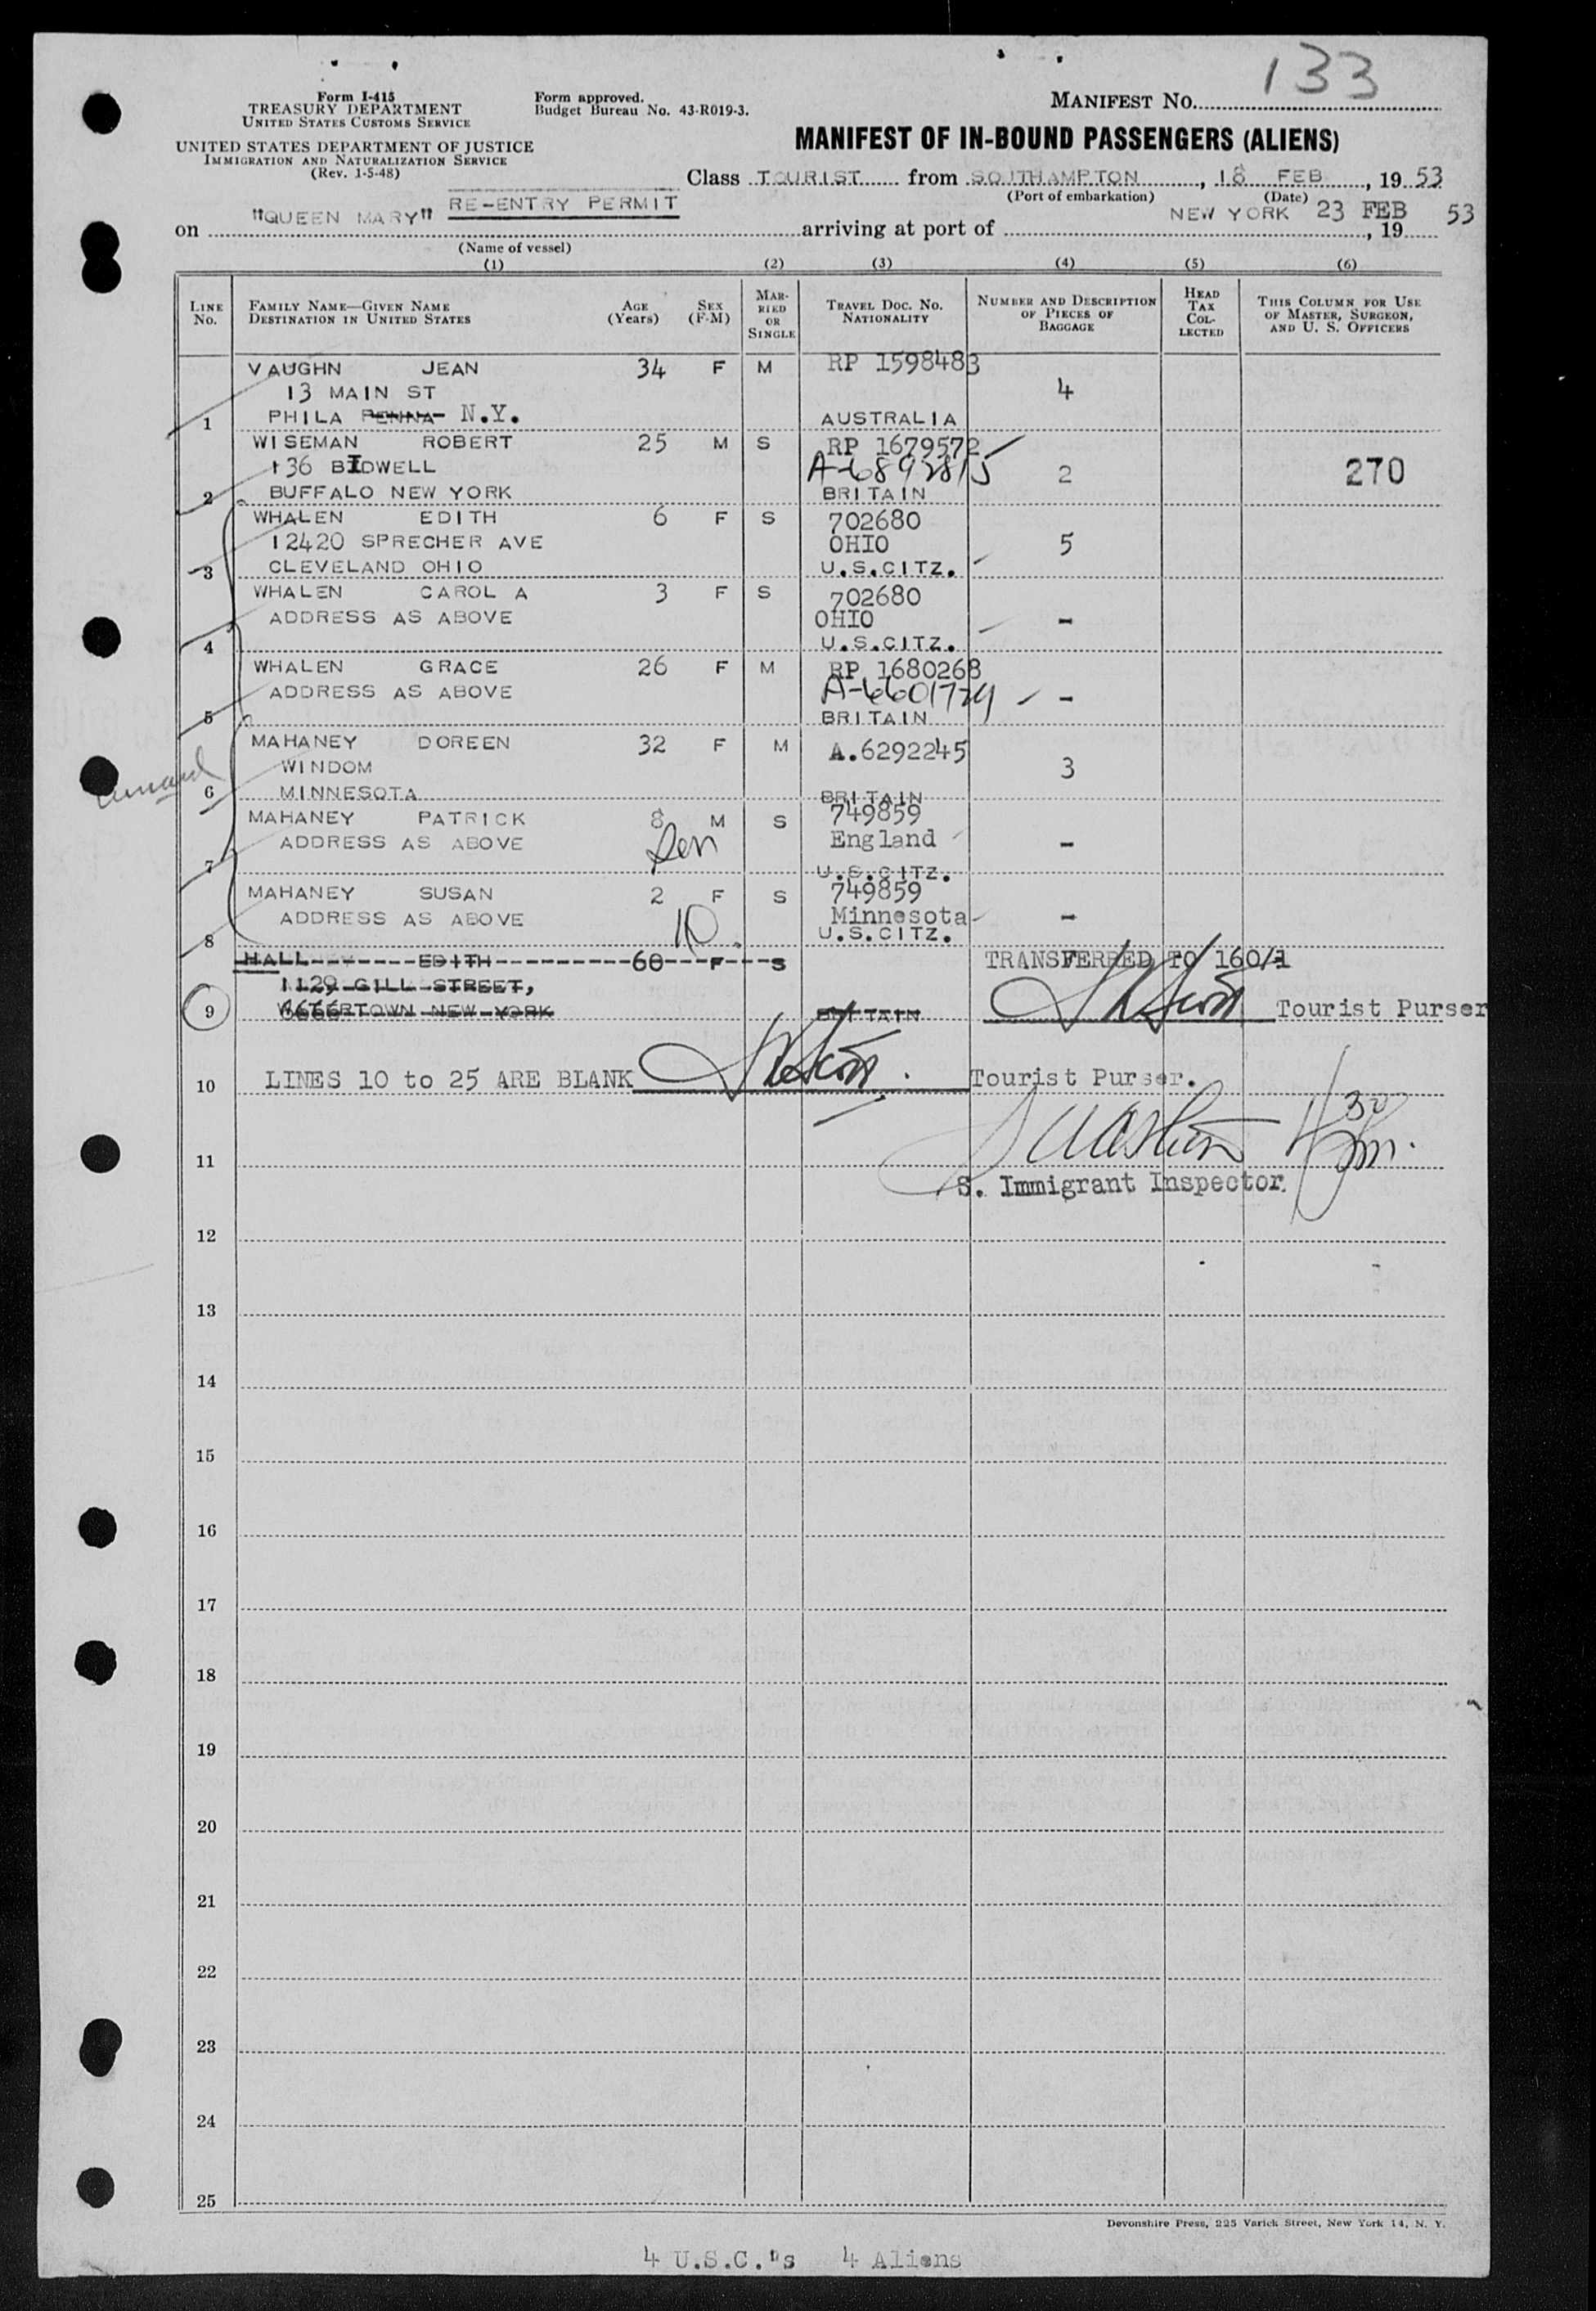 133
Form I-415
TREASURY DEPARTMENT
UNITED STATES CUSTOMS SERVICE
UNITED STATES DEPARTMENT OF JUSTICE
IMMIGRATION AND NATURALIZATION SERVICE
(Rev. 1-5-48)
Form approved.
Budget Bureau No. 43-R019-3.
MANIFEST No.
MANIFEST OF IN-BOUND PASSENGERS (ALIENS)
Class TOURIST from SOUTHAMPTON, 18 FEB, 1953
(Port of embarkation) (Date)
RE-ENTRY PERMIT
on "QUEEN MARY" arriving at port of NEW YORK 23 FEB, 19 53
(Name of vessel)
(1) (2) (3) (4) (5) (6)
LINE No.
FAMILY NAME—GIVEN NAME
DESTINATION IN UNITED STATES
AGE (Years)
SEX (F-M)
MARRIED OR SINGLE
TRAVEL DOC. NO.
NATIONALITY
NUMBER AND DESCRIPTION OF PIECES OF BAGGAGE
HEAD TAX COLLECTED
THIS COLUMN FOR USE OF MASTER, SURGEON, AND U. S. OFFICERS
VAUGHN JEAN 34 F M RP 1598483
13 MAIN ST 4
1 PHILA PENNA N.Y. AUSTRALIA
WISEMAN ROBERT 25 M S RP 1679572
136 BIDWELL A-6892815 2 270
2 BUFFALO NEW YORK BRITAIN
WHALEN EDITH 6 F S 702680
12420 SPRECHER AVE OHIO 5
3 CLEVELAND OHIO U.S.CITZ.
WHALEN CAROL A 3 F S 702680
ADDRESS AS ABOVE OHIO -
4 U.S.CITZ.
WHALEN GRACE 26 F M RP 1680268
ADDRESS AS ABOVE A-6601774 -
5 BRITAIN
MAHANEY DOREEN 32 F M A.6292245
WINDOM 3
6 MINNESOTA BRITAIN
MAHANEY PATRICK 8 M S 749859
ADDRESS AS ABOVE England -
7 U.S.CITZ.
MAHANEY SUSAN 2 F S 749859
ADDRESS AS ABOVE 10 Minnesota -
8 U.S.CITZ.
HALL EDITH 60 F S TRANSFERRED TO 160/1
1129 GILL STREET,
9 WATERTOWN NEW YORK BRITAIN Tourist Purser
10 LINES 10 to 25 ARE BLANK Tourist Purser.
4 30 pm.
11
S. Immigrant Inspector.
12
13
14
15
16
17
18
19
20
21
22
23
24
25
Devonshire Press, 225 Varick Street, New York 14, N. Y.
4 U.S.C."s 4 Aliens